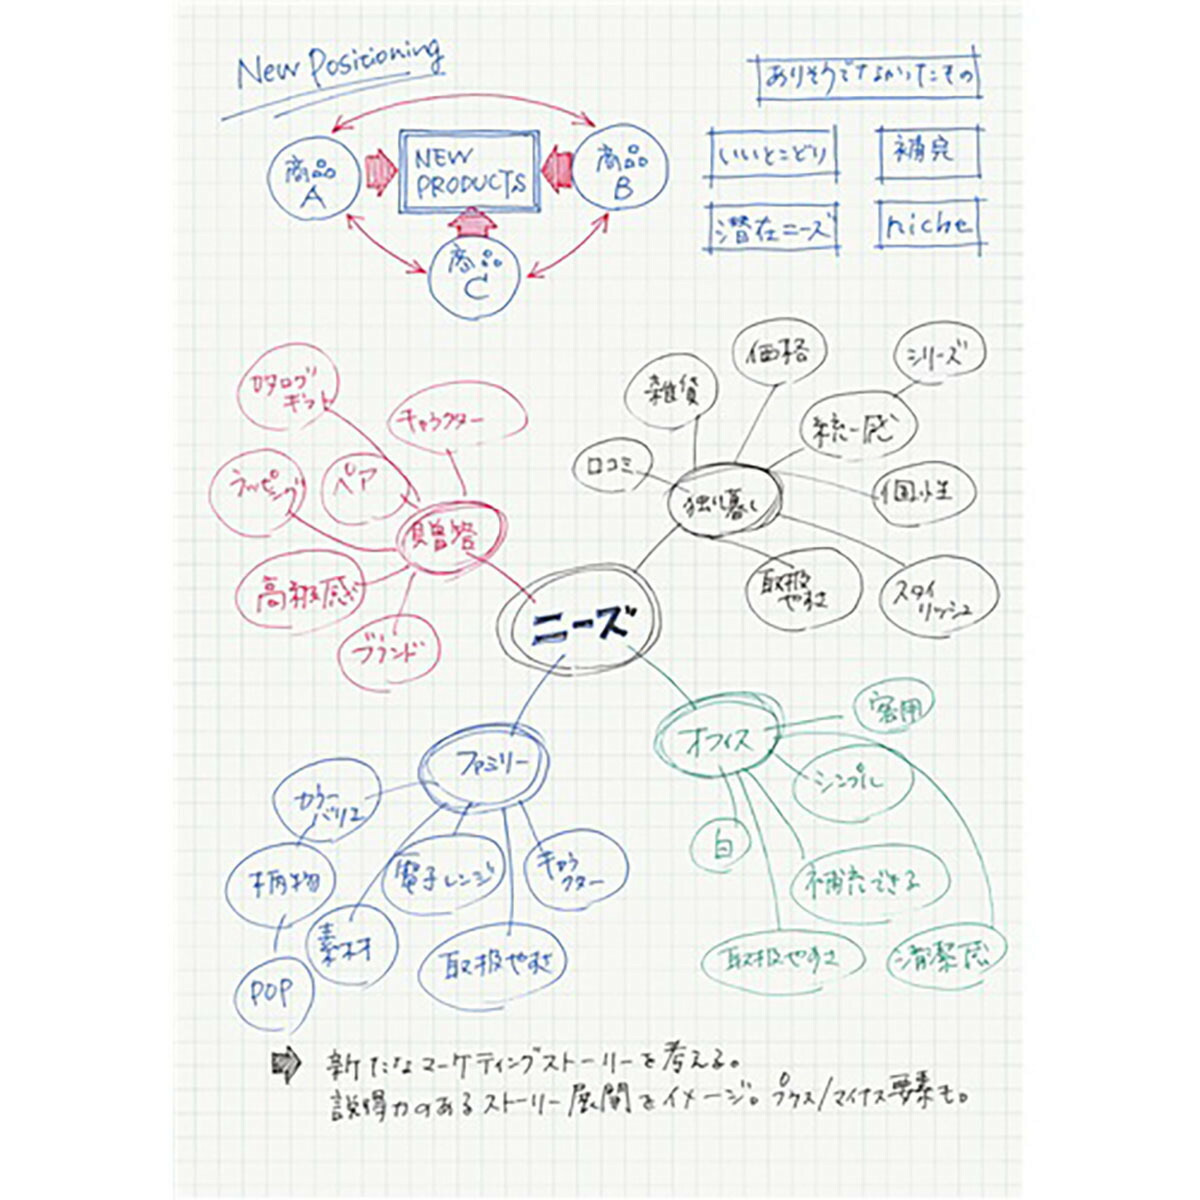 New Positioning
ありそうでなかったもの
いいとこどり
補完
潜在ニーズ
niche
商品
A
NEW
PRODUCTS
商品
B
商品
C
カタログ
ギフト
キャラクター
ラッピング
ペア
贈答
高級感
ブランド
価格
シリーズ
雑貨
統一感
口コミ
独り暮し
個性
取扱
やすさ
スタイ
リッシュ
ニーズ
ファミリー
カラー
バリエ
柄物
POP
素材
電子レンジ
取扱やすさ
キャラ
クター
オフィス
客用
シンプル
白
補充できる
取扱やすさ
清潔感
新たなマーケティングストーリーを考える。
説得力のあるストーリー展開をイメージ。プラス/マイナス要素も。